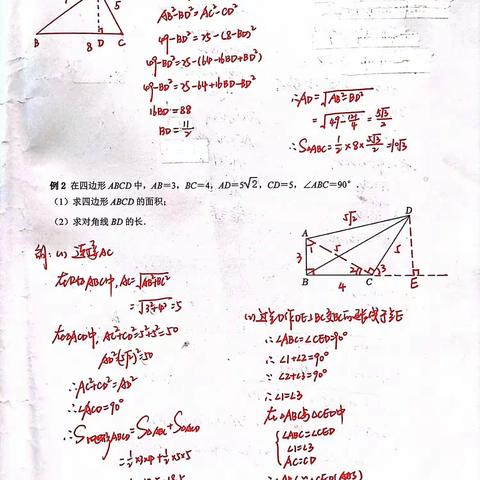 5
B 8 D C
AB²-BD²=AC²-CD²
49-BD²=25-(8-BD)²
49-BD²=25-(64-16BD+BD²)
49-BD²=25-64+16BD-BD²
16BD=88
BD=11/2
∴AD=√(AB²-BD²)
=√(49-121/4)=5√3/2
∴S△ABC=1/2×8×5√3/2=10√3
例2 在四边形ABCD中，AB=3，BC=4，AD=5√2，CD=5，∠ABC=90°.
（1）求四边形ABCD的面积；
（2）求对角线BD的长.
解：(1) 连接AC
在Rt△ABC中，AC=√(AB²+BC²)
=√(3²+4²)=5
在△ACD中，AC²+CD²=5²+5²=50
AD²=(5√2)²=50
∴AC²+CD²=AD²
∴∠ACD=90°
∴S四边形ABCD=S△ABC+S△ACD
=1/2×3×4+1/2×5×5
A B C D E
5√2 3 1 5 5 2 3 4
(2) 过点D作DE⊥BC交BC的延长线于点E
∴∠ABC=∠CED=90°
∴∠1+∠2=90°
∵∠2+∠3=90°
∴∠1=∠3
在△ABC与△CED中
∠ABC=∠CED
∠1=∠3
AC=CD